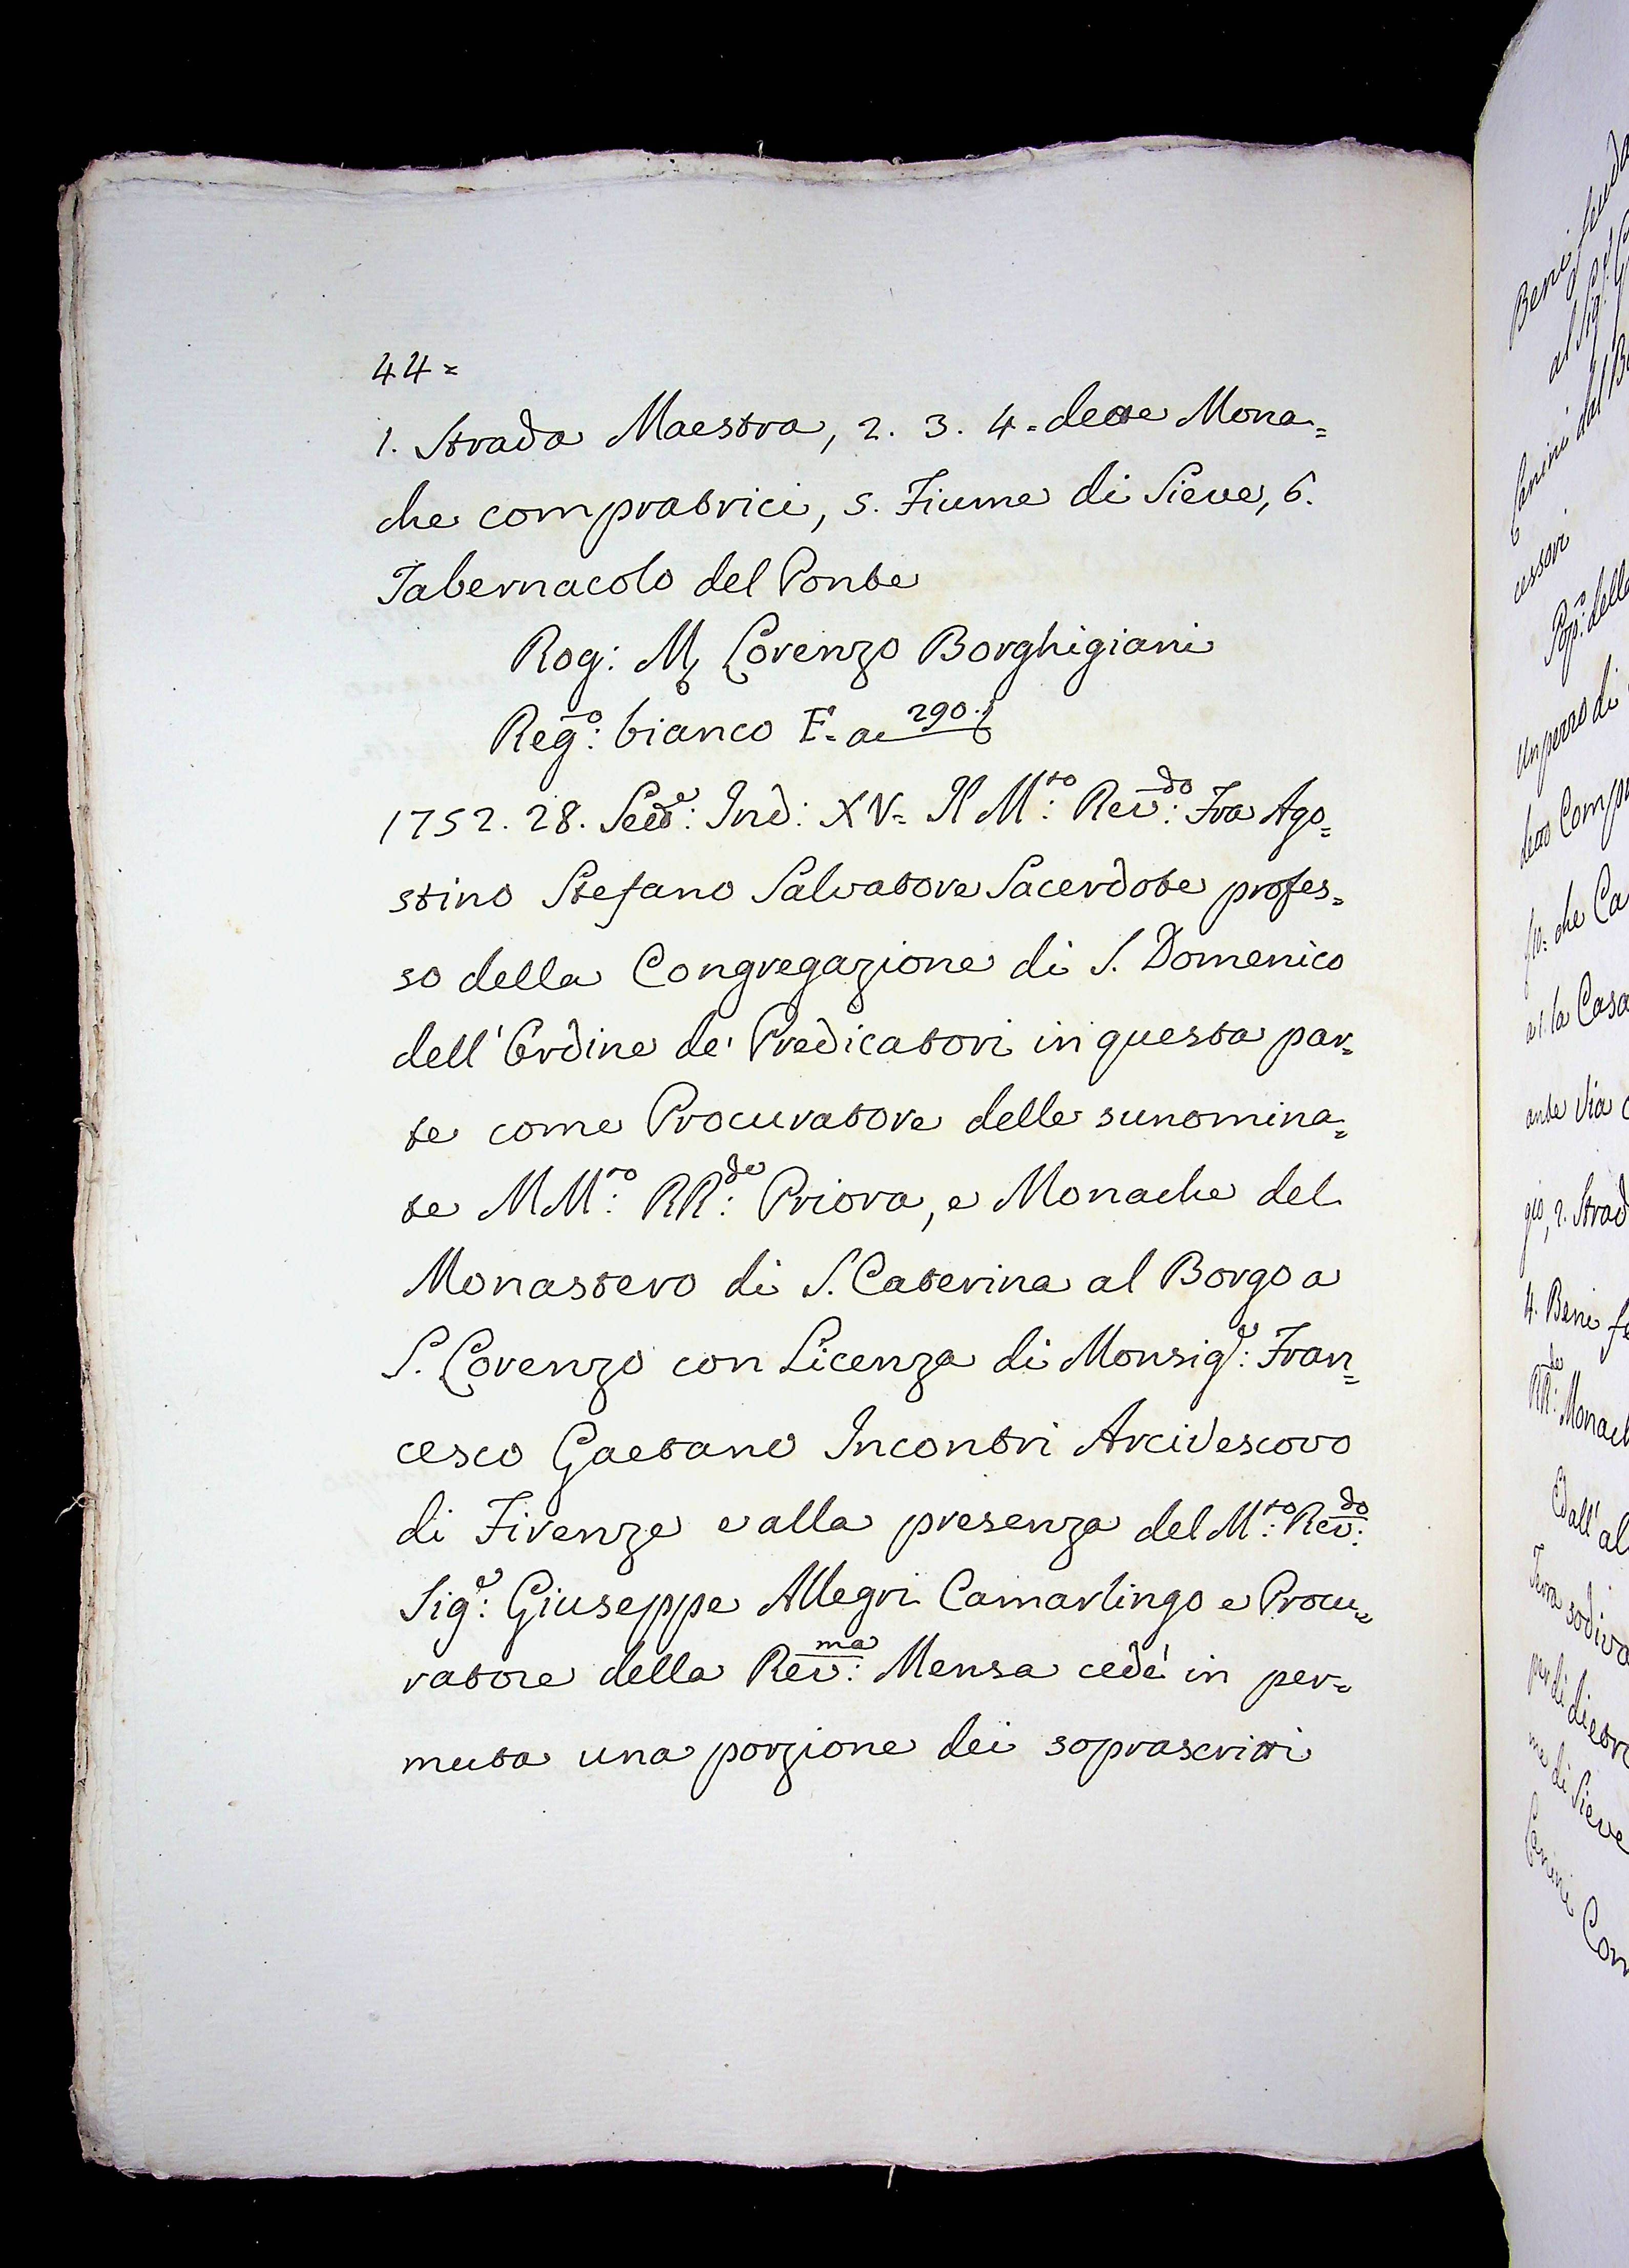 44=
1. Strada Maestra, 2. 3. 4. dette Mona=
che compratrici, 5. Fiume di Sieve, 6.
Tabernacolo del Ponte
Rog: M Lorenzo Borghigiani
Reg:º bianco E. a 290.
1752. 28. Ind: XV= Il M:to Rev:do Fra Ago=
stino Stefano Salvatore Sacerdote profes=
so della Congregazione di S. Domenico
dell'Ordine de' Predicatori in questa par=
te come Procuratore delle sunomina=
te MM:to RR:de Priora, e Monache del
Monastero di S. Caterina al Borgo a
S. Lorenzo con Licenza di Monsig:e Fran=
cesco Gaetano Incontri Arcivescovo
di Firenze e alla presenza del M:to Rev:do
Sig:e Giuseppe Allegri Camarlingo e Procu=
ratore della Rev:ma Mensa cedè in per=
muta una porzione dei soprascritti
Beni
al Sig:
Canini dal
cessori
Pop:º delle
un pezzo di
detto
che Ca
la Casa
ante Via
gio, 2. Strad
4. Beni
RR:de Monach
dall'al
Terra sodiva
per di dietro
me di Sieve
Canini Con